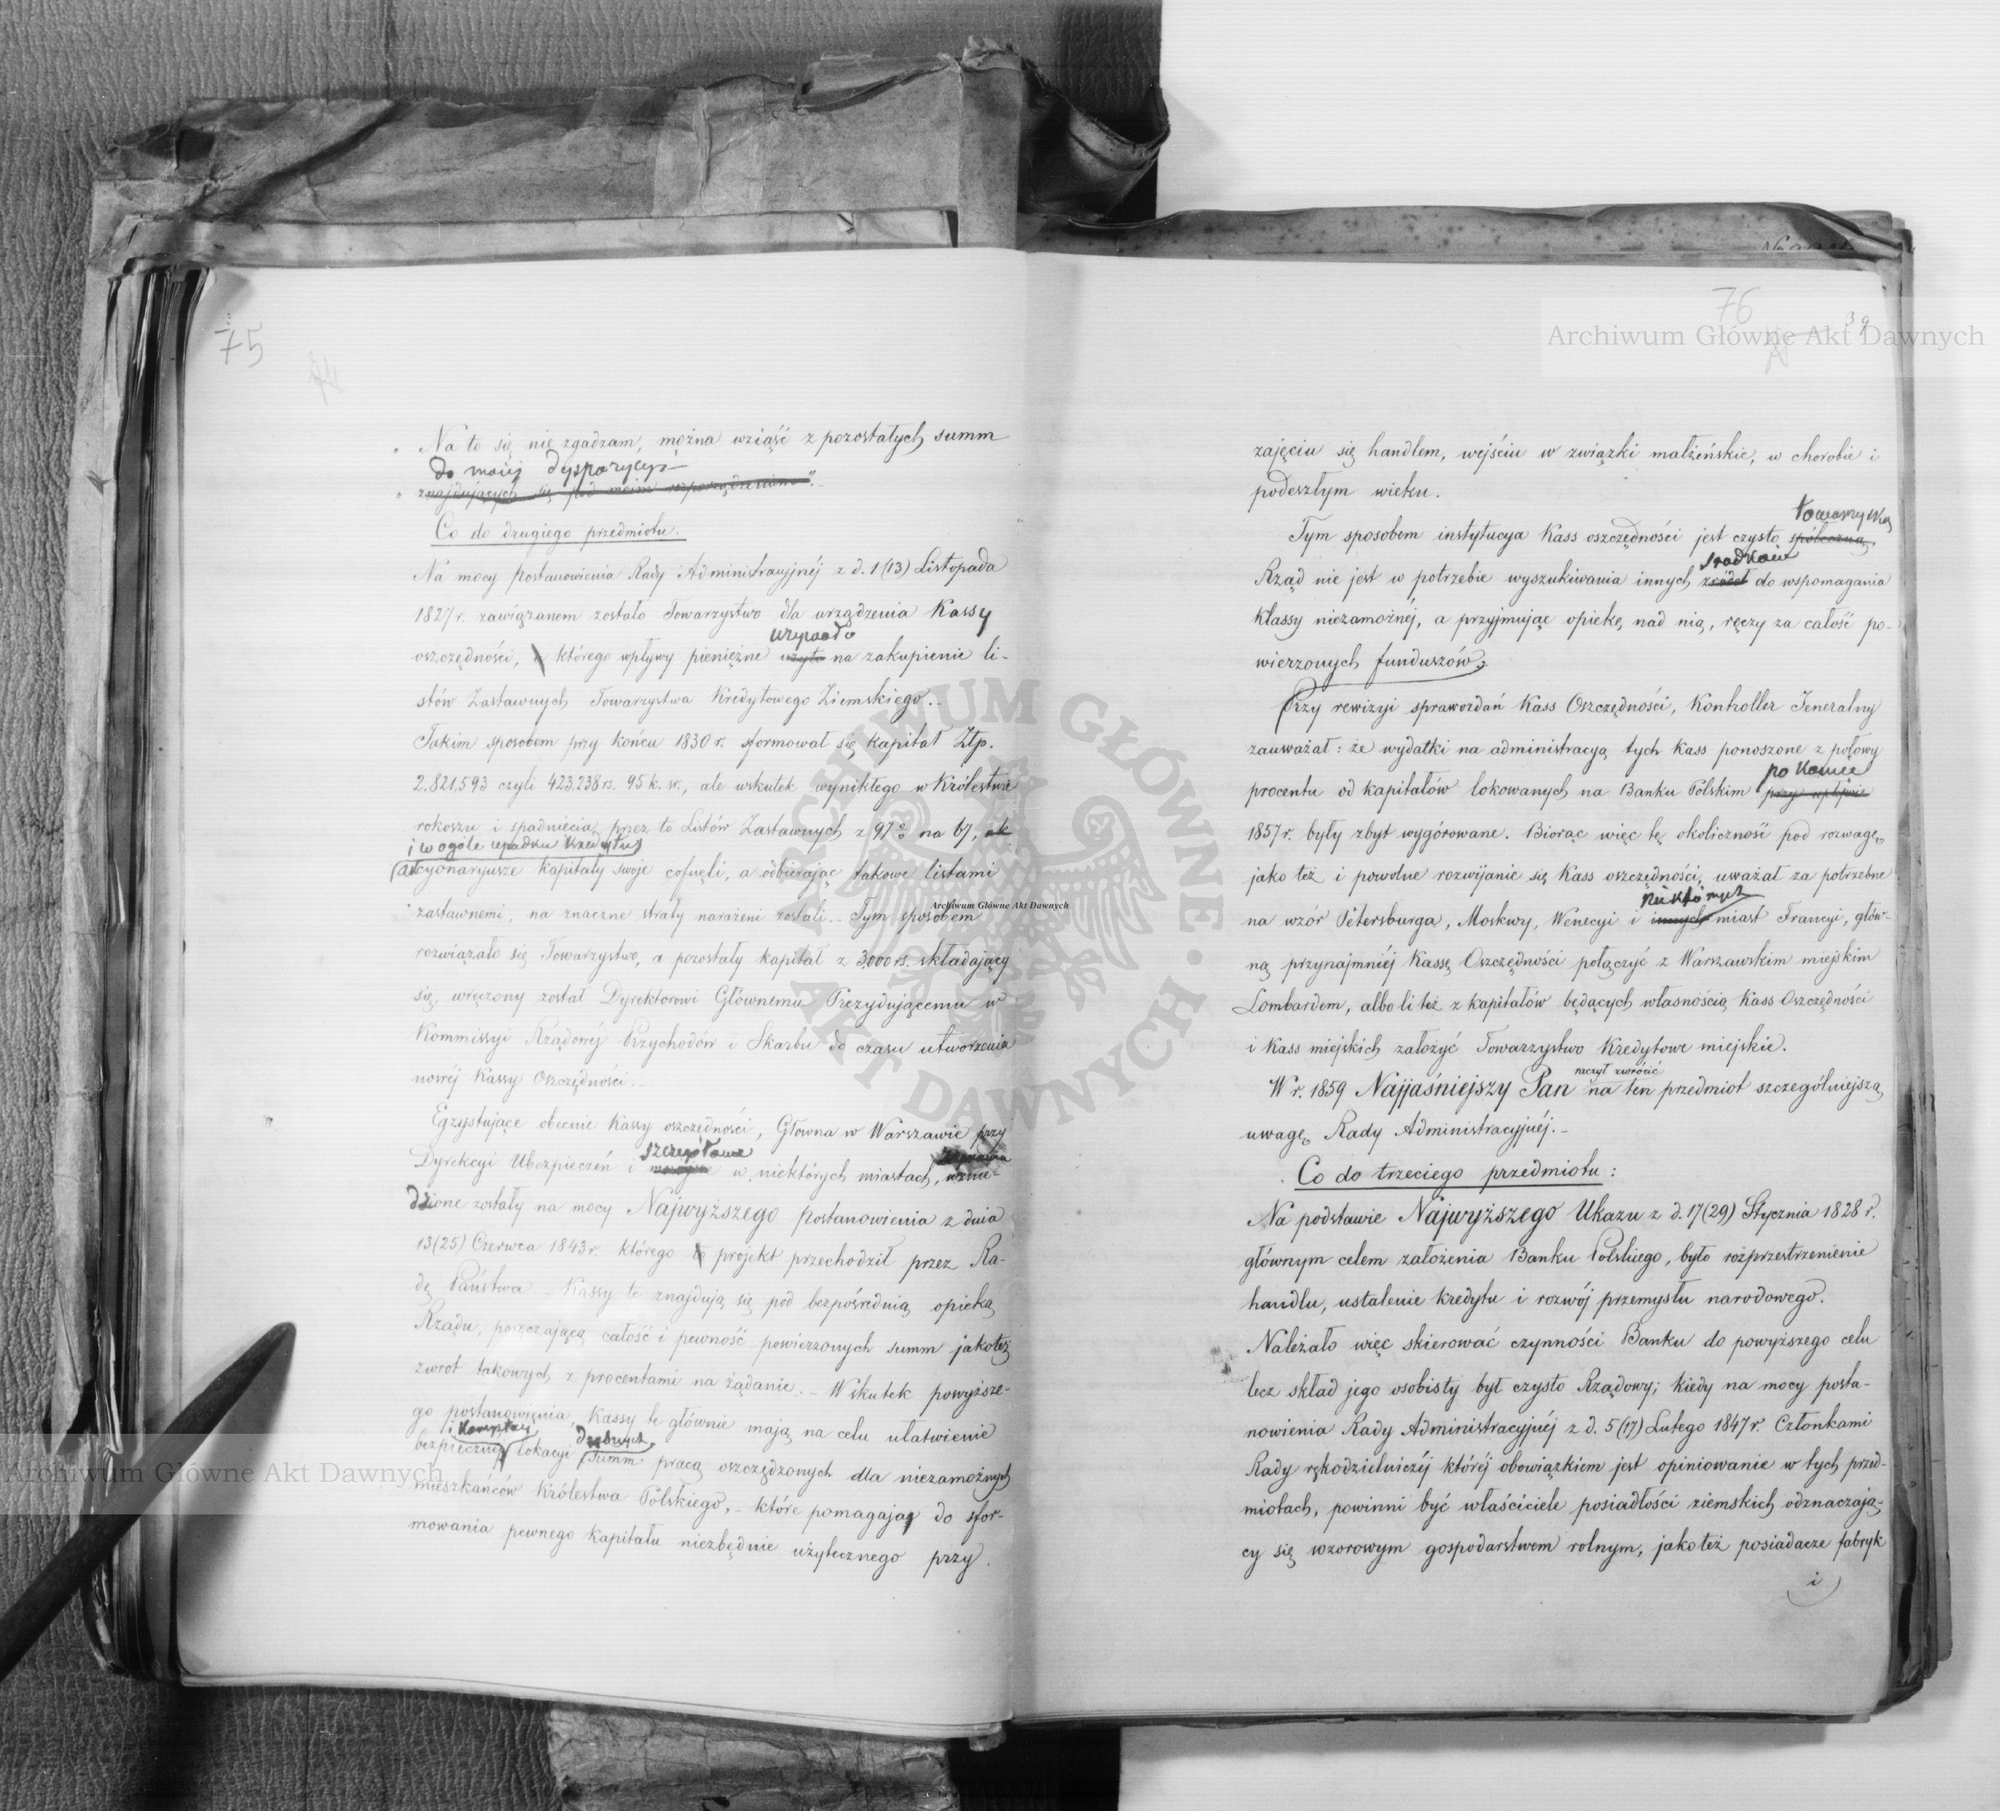 75
„ Na to się nie zgadzam, można wziąść z pozostałych summ
do mojej dyspozycyi
„ znajdujących się pod moim rozporządzeniem".
Co do drugiego przedmiotu.
Na mocy Postanowienia Rady Administracyjnéj z d. 1 (13) Listopada
1827 r. zawiązanem zostało Towarzystwo dla urządzenia Kassy
oszczędności, którego wpływy pieniężne użyto na zakupienie li-
stów Zastawnych Towarzystwa Kredytowego Ziemskiego.
Takim sposobem przy końcu 1830 r. sformował się kapitał Złp.
2.821,593 czyli 423.238 rs. 95 k. sr., ale wskutek wynikłego w Królestwie
rokoszu i spadnięcia przez to Listów Zastawnych z 97 % na 67, ak
i w ogóle upadku Kredytu
akcyonaryusze kapitały swoje cofnęli, a odbierając takowe listami
zastawnemi, na znaczne straty narażeni zostali. Tym sposobem
rozwiązało się Towarzystwo, a pozostały kapitał z 3,000 rs. składający
się, wręczony został Dyrektorowi Głównemu Prezydującemu w
Kommissyi Rządowéj Przychodów i Skarbu do czasu utworzenia
nowéj Kassy Oszczędności.
Egzystujące obecnie Kassy oszczędności, Główna w Warszawie przy
szczegółowe
Dyrekcyi Ubezpieczeń i w niektórych miastach,
dzione zostały na mocy Najwyższego Postanowienia z dnia
13 (25) Czerwca 1843 r. którego projekt przechodził przez Ra-
dę Państwa. Kassy te znajdują się pod bezpośrednią opieką
Rządu, poręczającą całość i pewność powierzonych summ jakoteż
zwrot takowych z procentami na żądanie. – Wskutek powyższe-
go postanowienia, Kassy te głównie mają na celu ułatwienie
drobnych
bezpiecznej lokacyi summ pracą oszczędzonych dla niezamożnych
mieszkańców Królestwa Polskiego, – które pomagają do sfor-
mowania pewnego kapitału niezbędnie użytecznego przy
76
39
zajęciu się handlem, wejściu w związki małżeńskie, w chorobie i
podeszłym wieku.
towarzyską
Tym sposobem instytucya Kass oszczędności jest czysto spółeczną,
środków
Rząd nie jest w potrzebie wyszukiwania innych źródeł do wspomagania
klassy niezamożnéj, a przyjmując opiekę nad nią, ręczy za całość po-
wierzonych funduszów.
Przy rewizyi sprawozdań Kass Oszczędności, Kontroller Jeneralny
zauważał: że wydatki na administracyą tych kass ponoszone z połowy
po koniec
procentu od kapitałów lokowanych na Banku Polskim przy upływie
1857 r. były zbyt wygórowane. Biorąc więc tę okoliczność pod rozwagę
jako też i powolne rozwijanie się Kass oszczędności, uważał za potrzebne
niektórych
na wzór Petersburga, Moskwy, Wenecyi i innych miast Francyi, głów-
ną przynajmniéj Kassę Oszczędności połączyć z Warszawskim miejskim
Lombardem, albo li też z kapitałów będących własnością Kass Oszczędności
i Kass miejskich założyć Towarzystwo Kredytowe miejskie.
raczył zwrócić
W r. 1859 Najjaśniejszy Pan na ten przedmiot szczególniejszą
uwagę Rady Administracyjnéj. –
Co do trzeciego przedmiotu:
Na podstawie Najwyższego Ukazu z d. 17 (29) Stycznia 1828 r.
głównym celem założenia Banku Polskiego, było rozprzestrzenienie
handlu, ustalenie kredytu i rozwój przemysłu narodowego.
Należało więc skierować czynności Banku do powyższego celu
lecz skład jego osobisty był czysto Rządowy; kiedy na mocy posta-
nowienia Rady Administracyjnéj z d. 5 (17) Lutego 1847 r. Członkami
Rady rękodzielniczéj któréj obowiązkiem jest opiniowanie w tych przed-
miotach, powinni być właściciele posiadłości ziemskich odznaczają-
cy się wzorowym gospodarstwem rolnym, jako też posiadacze fabryk
i
Archiwum Główne Akt Dawnych
Archiwum Główne Akt Dawnych
Archiwum Główne Akt Dawnych
ARCHIWUM GŁÓWNE AKT DAWNYCH